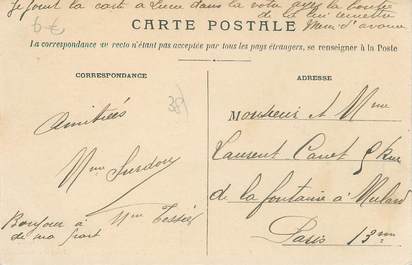 Je joint la carte à dans la votre avez la bonté
de la lui remettre
6€ CARTE POSTALE Merci d'avance
La correspondance au recto n'étant pas acceptée par tous les pays étrangers, se renseigner à la Poste
CORRESPONDANCE
38
Amitiés
Mme Surdon
Bonjour à Mme Tessier
de ma part
ADRESSE
Monsieur et Mme
Laurent Canet 5 Rue
de la fontaine à Mulard
Paris 13me